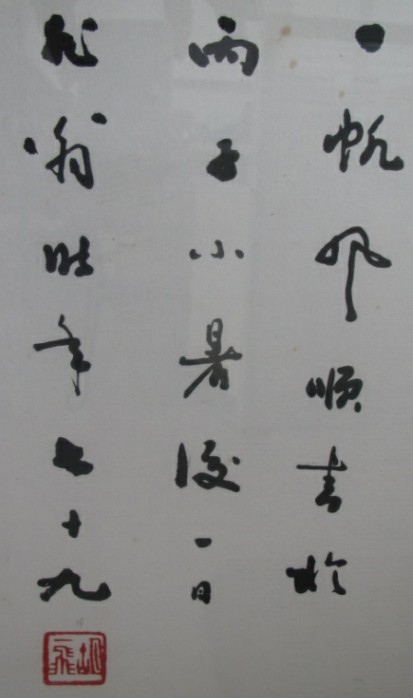 一帆風順書於
丙子小暑後一日
飛翁時年七十九